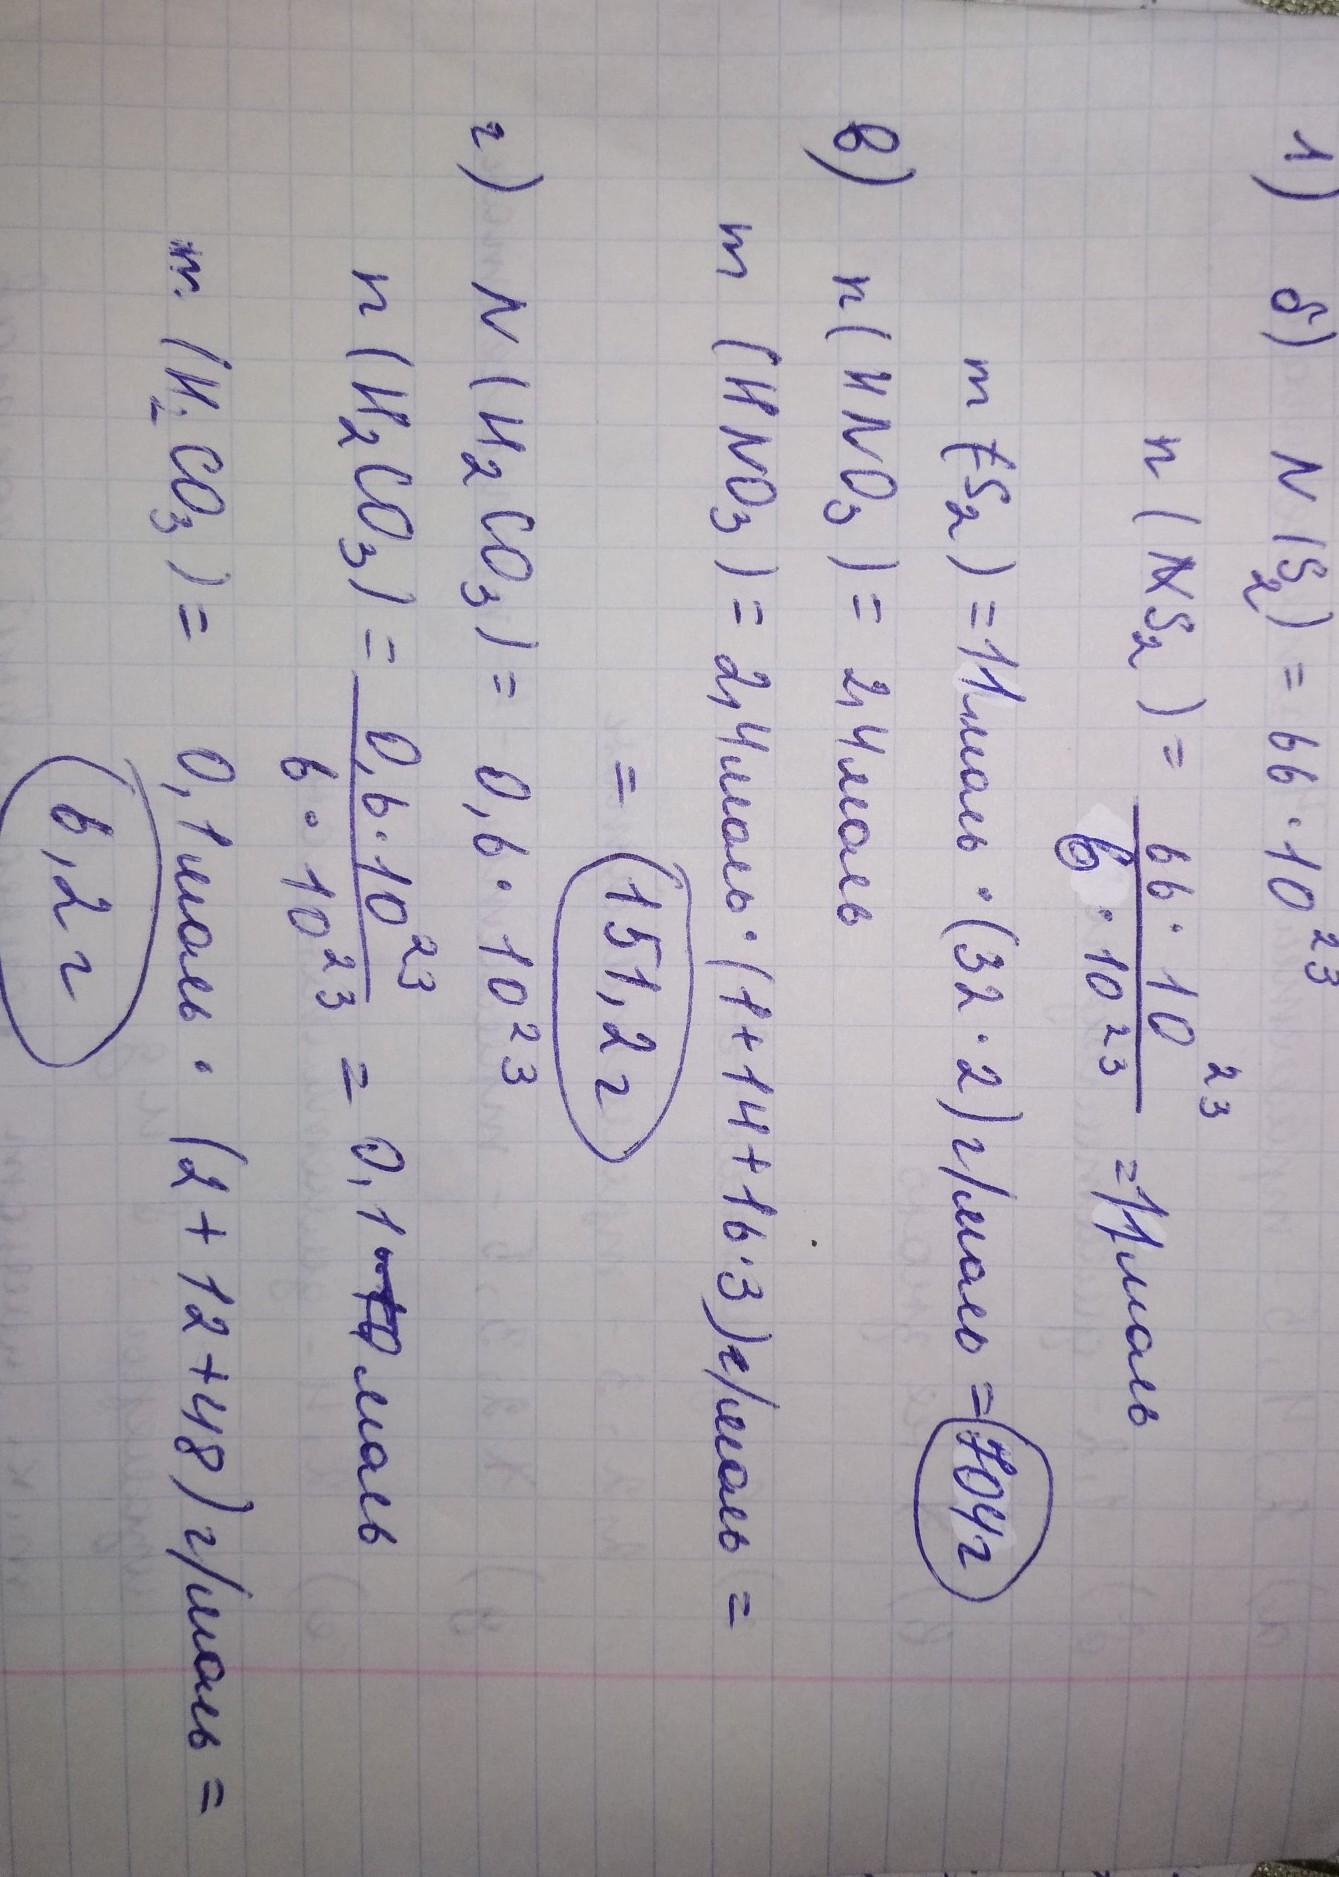 1) б) N(S₂) = 66 · 10²³
n(S₂) = 66 · 10²³ / 6 · 10²³ = 11 моль
m(S₂) = 11 моль · (32 · 2) г/моль = 704 г
в) n(HNO₃) = 2,4 моль
m (HNO₃) = 2,4 моль · (1 + 14 + 16 · 3) г/моль =
= 151,2 г
г) N(H₂CO₃) = 0,6 · 10²³
n(H₂CO₃) = 0,6 · 10²³ / 6 · 10²³ = 0,1 моль
m (H₂CO₃) = 0,1 моль · (2 + 12 + 48) г/моль =
6,2 г